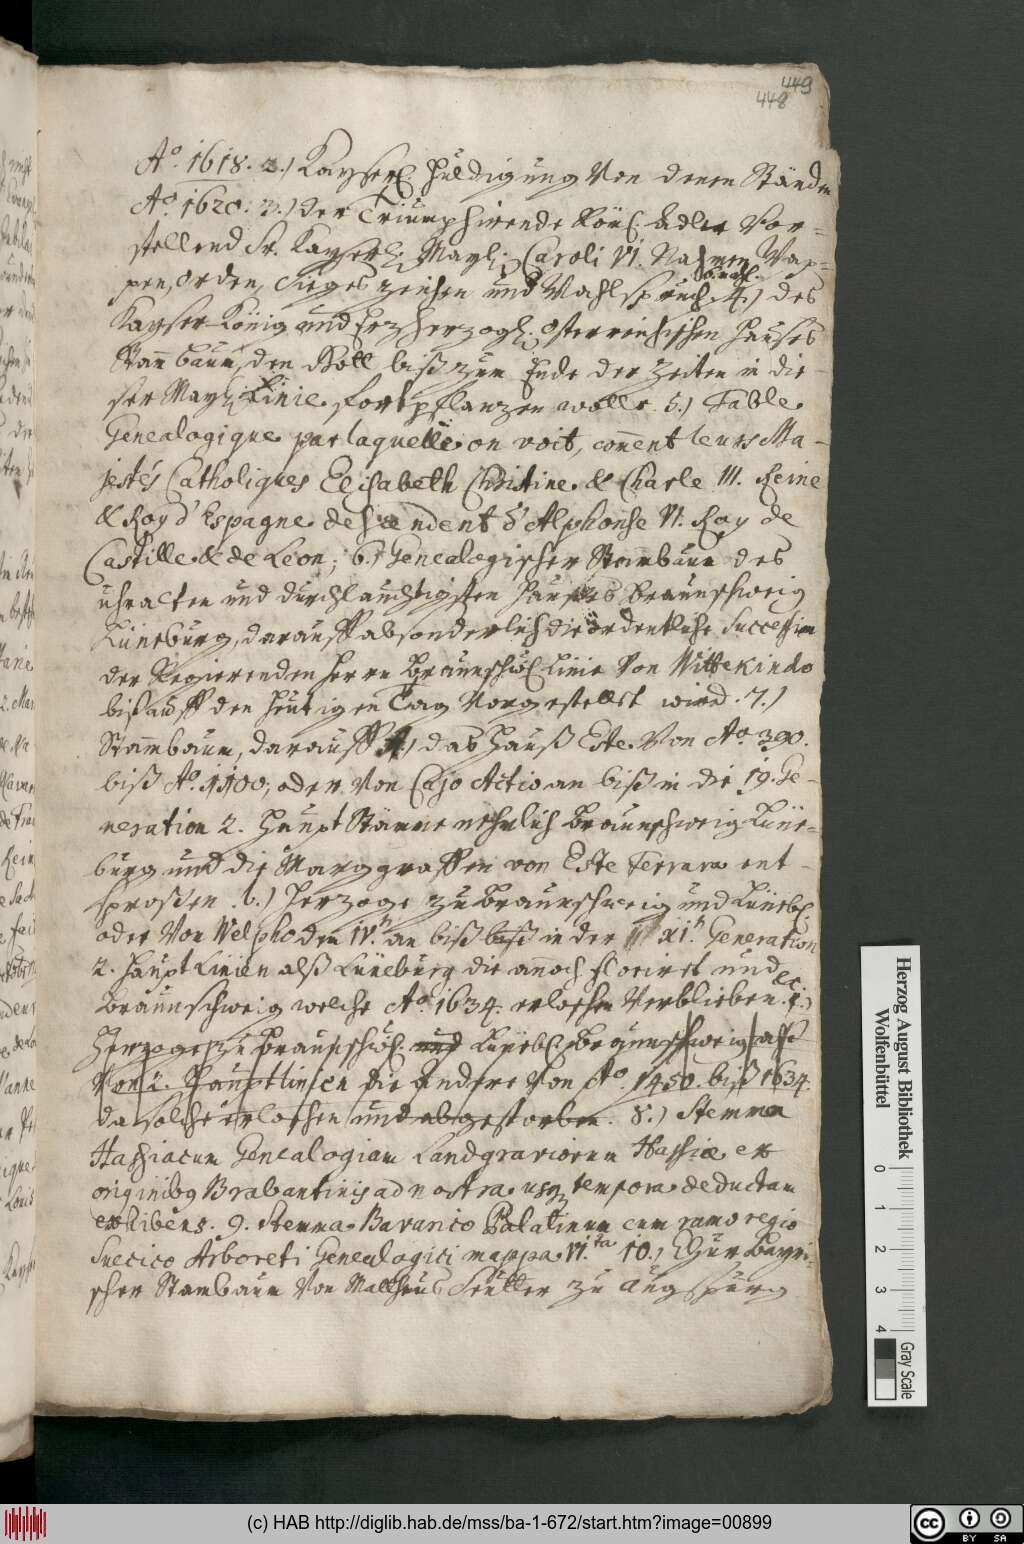 449
448
Ao. 1618. 2.) Kayserl. Huldigung Von denen Ständen
Ao. 1620. 3.) der Triumphirende Röm. Adler Vor-
stellend Sr. Kayserl. Mayl. Caroli VI. Nahmen Wap-
pen, Orden, Sieges zeichen und Wahlspruch. 4.) des
Kayser König und Erzherzogl. Osterreichischen Hauses
Stam̄baum, den Gott biß zum Ende der Zeiten in die-
ser May. Linie fortpflanzen wolle. 5.) Table
Genealogique par laquelle on voit, com̄ent leurs Ma-
jestés Catholiques Elisabeth Christine & Charle III. Reine
& Roy d'Espagne descendent d'Alphonse VI. Roy de
Castille & de Leon; 6.) Genealogischer Stambaum des
uhralten und durchlauchtigsten Hauses Braunschweig
Lüneburg, darauff absonderlich die ordentliche Succession
der Regierenden Herrn Braunschw. Linie Von Wittekindo
biß auff den heutigen Tag Vorgestellet wird. 7.)
Stam̄baum, darauff a.) das Hauß Este Von Ao. 390.
biß Ao. 1100; oder Von Cajo Actio an biß in die 19. Ge-
neration 2. Haupt Stämme nehmlich Braunschweig Lüne-
burg und die Marggraffen von Este Ferrara ent-
sproßen. b.) Herzoge zu Braunschweig und Lüneb.
oder Von Welpho dem IV.n an biß biß in der XI.n Generation
2. Haupt Linien alß Lüneburg die annoch floriret und
Braunschweig welche Ao. 1634. erloschen Verblieben.
Herzoge zu Braunschw. und Lüneb. Braunschweig alß
Von 2. Hauptlinien die andere Von Ao. 1450. biß 1634.
da solche erloschen und abgestorben. 8.) Stemma
Hassiacum Genealogiam Landgraviorum Hassiae ex
originibq Brabantinis ad nostra usq tempora deductam
exhibens. 9. Stemma Bavarico Palatinum cum ramo regio
Suecico Arboreti Genealogici mappa VI.ta 10.) Chur Bayri-
scher Stambaum Von Matthäus Seutter zu Augspurg
Herzog August Bibliothek
Wolfenbüttel
0
1
2
3
4
Gray Scale
(c) HAB http://diglib.hab.de/mss/ba-1-672/start.htm?image=00899
cc BY SA